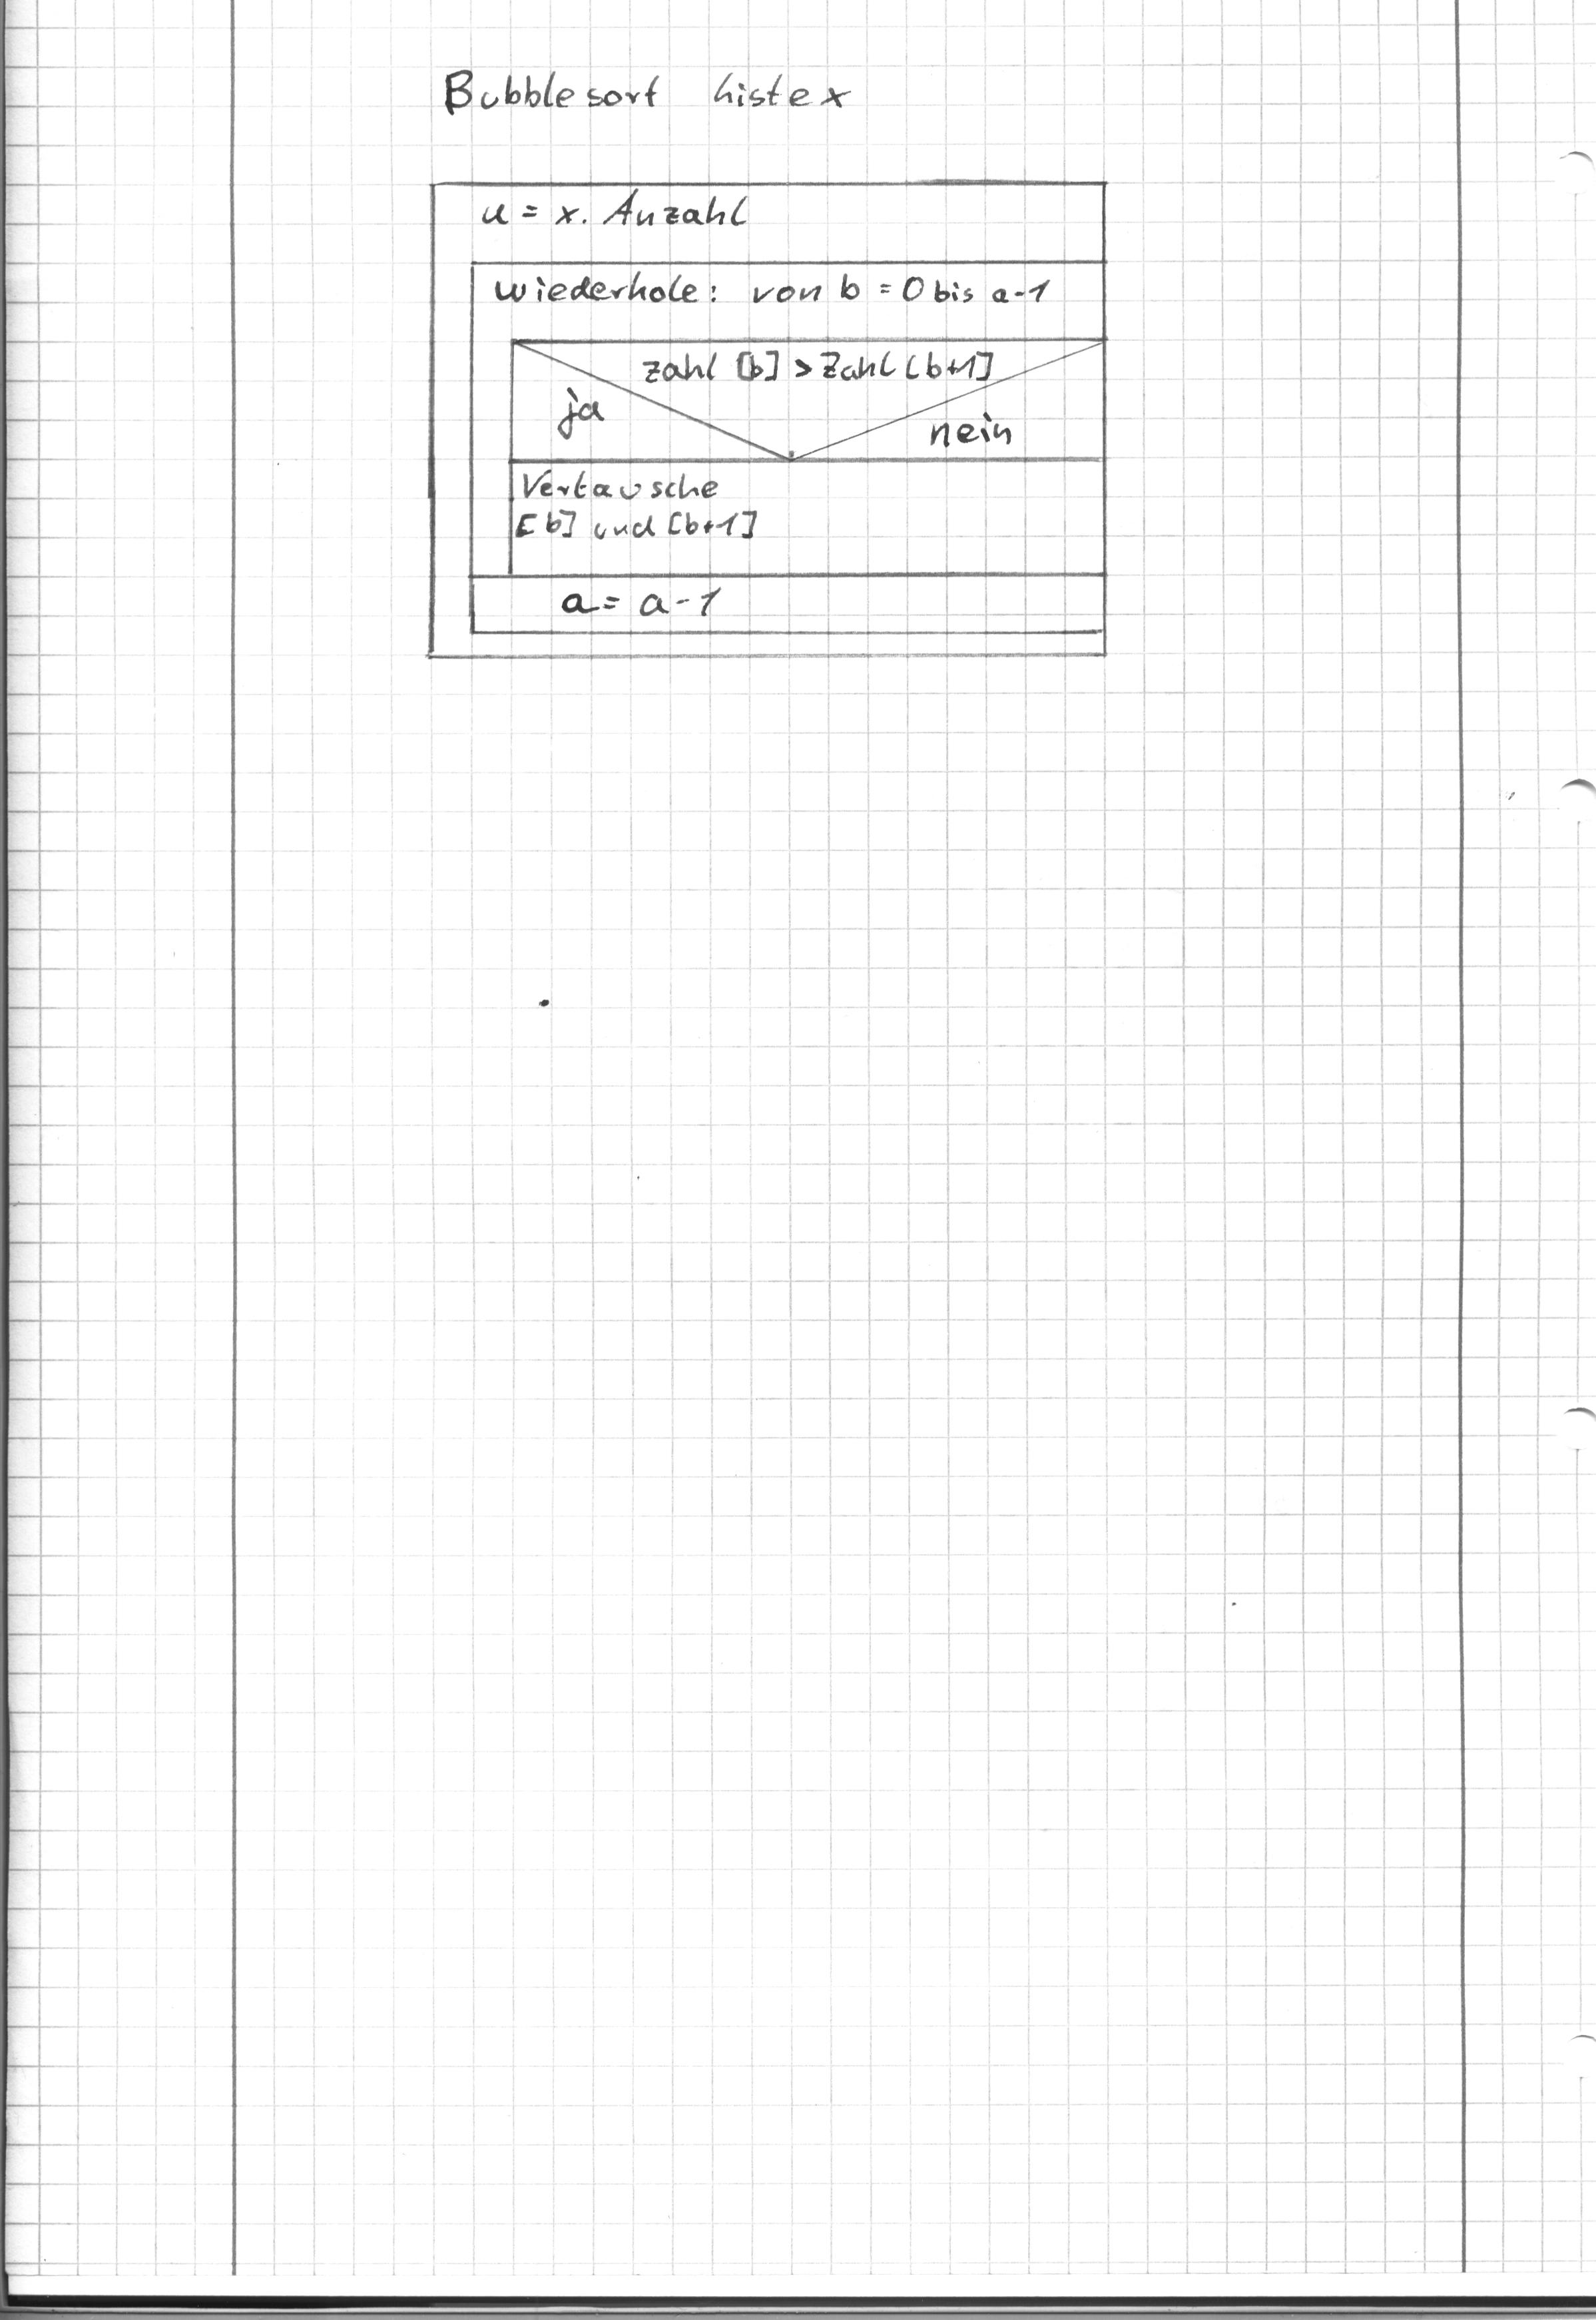 Bubblesort Liste x
u = x. Anzahl
wiederhole: von b = 0 bis a-1
zahl [b] > Zahl [b+1]
ja
nein
Vertausche
[b] und [b+1]
a = a-1